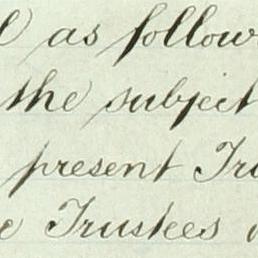 as follow
the subject
present Tru
Trustees